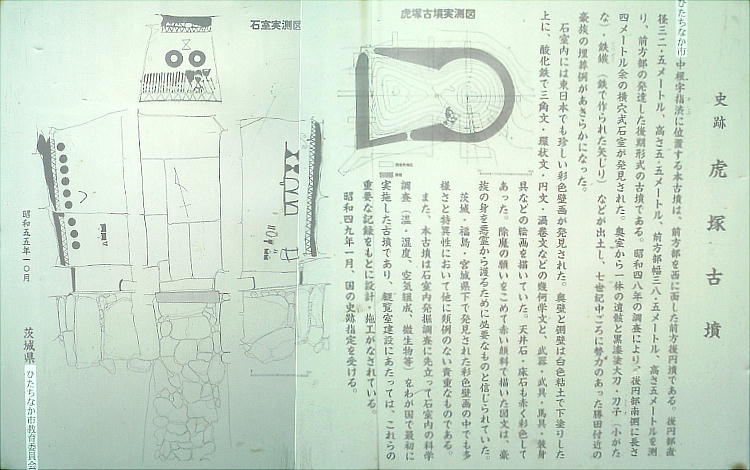 史跡 虎塚古墳
ひたちなか市中根字指渋に位置する本古墳は、前方部を西に面した前方後円墳である。後円部直
径三二・五メートル、高さ五・五メートル、前方部幅三八・五メートル、高さ五メートルを測
り、前方部の発達した後期形式の古墳である。昭和四八年の調査により、後円部南側に長さ
四メートル余の横穴式石室が発見された。奥室から一体の遺骸と黒漆塗大刀・刀子（小がた
な）・鉄鏃（鉄で作られた矢じり）などが出土し、七世紀中ごろに勢力のあった勝田付近の
豪族の埋葬例があきらかになった。
石室内には東日本でも珍しい彩色壁画が発見された。奥壁と側壁は白色粘土で下塗りした
上に、酸化鉄で三角文・環状文・円文・渦巻文などの幾何学文と、武器・武具・馬具・装身
具などの絵画を描いていた。天井石・床石も赤く彩色して
あった。除魔の願いをこめて赤い顔料で描いた図文は、豪
族の身を悪霊から護るために必要なものと信じられていた。
茨城・福島・宮城県下で発見された彩色壁画の中でも多
様さと特異性において他に類例のない貴重なものである。
また、本古墳は石室内発掘調査に先立って石室内の科学
調査（温・湿度、空気組成、微生物等）をわが国で最初に
実施した古墳であり、観覧室建設にあたっては、これらの
重要な記録をもとに設計・施工がなされている。
昭和四九年一月、国の史跡指定を受ける。
虎塚古墳実測図
石室実測図
昭和五五年一〇月
茨城県
ひたちなか市教育委員会